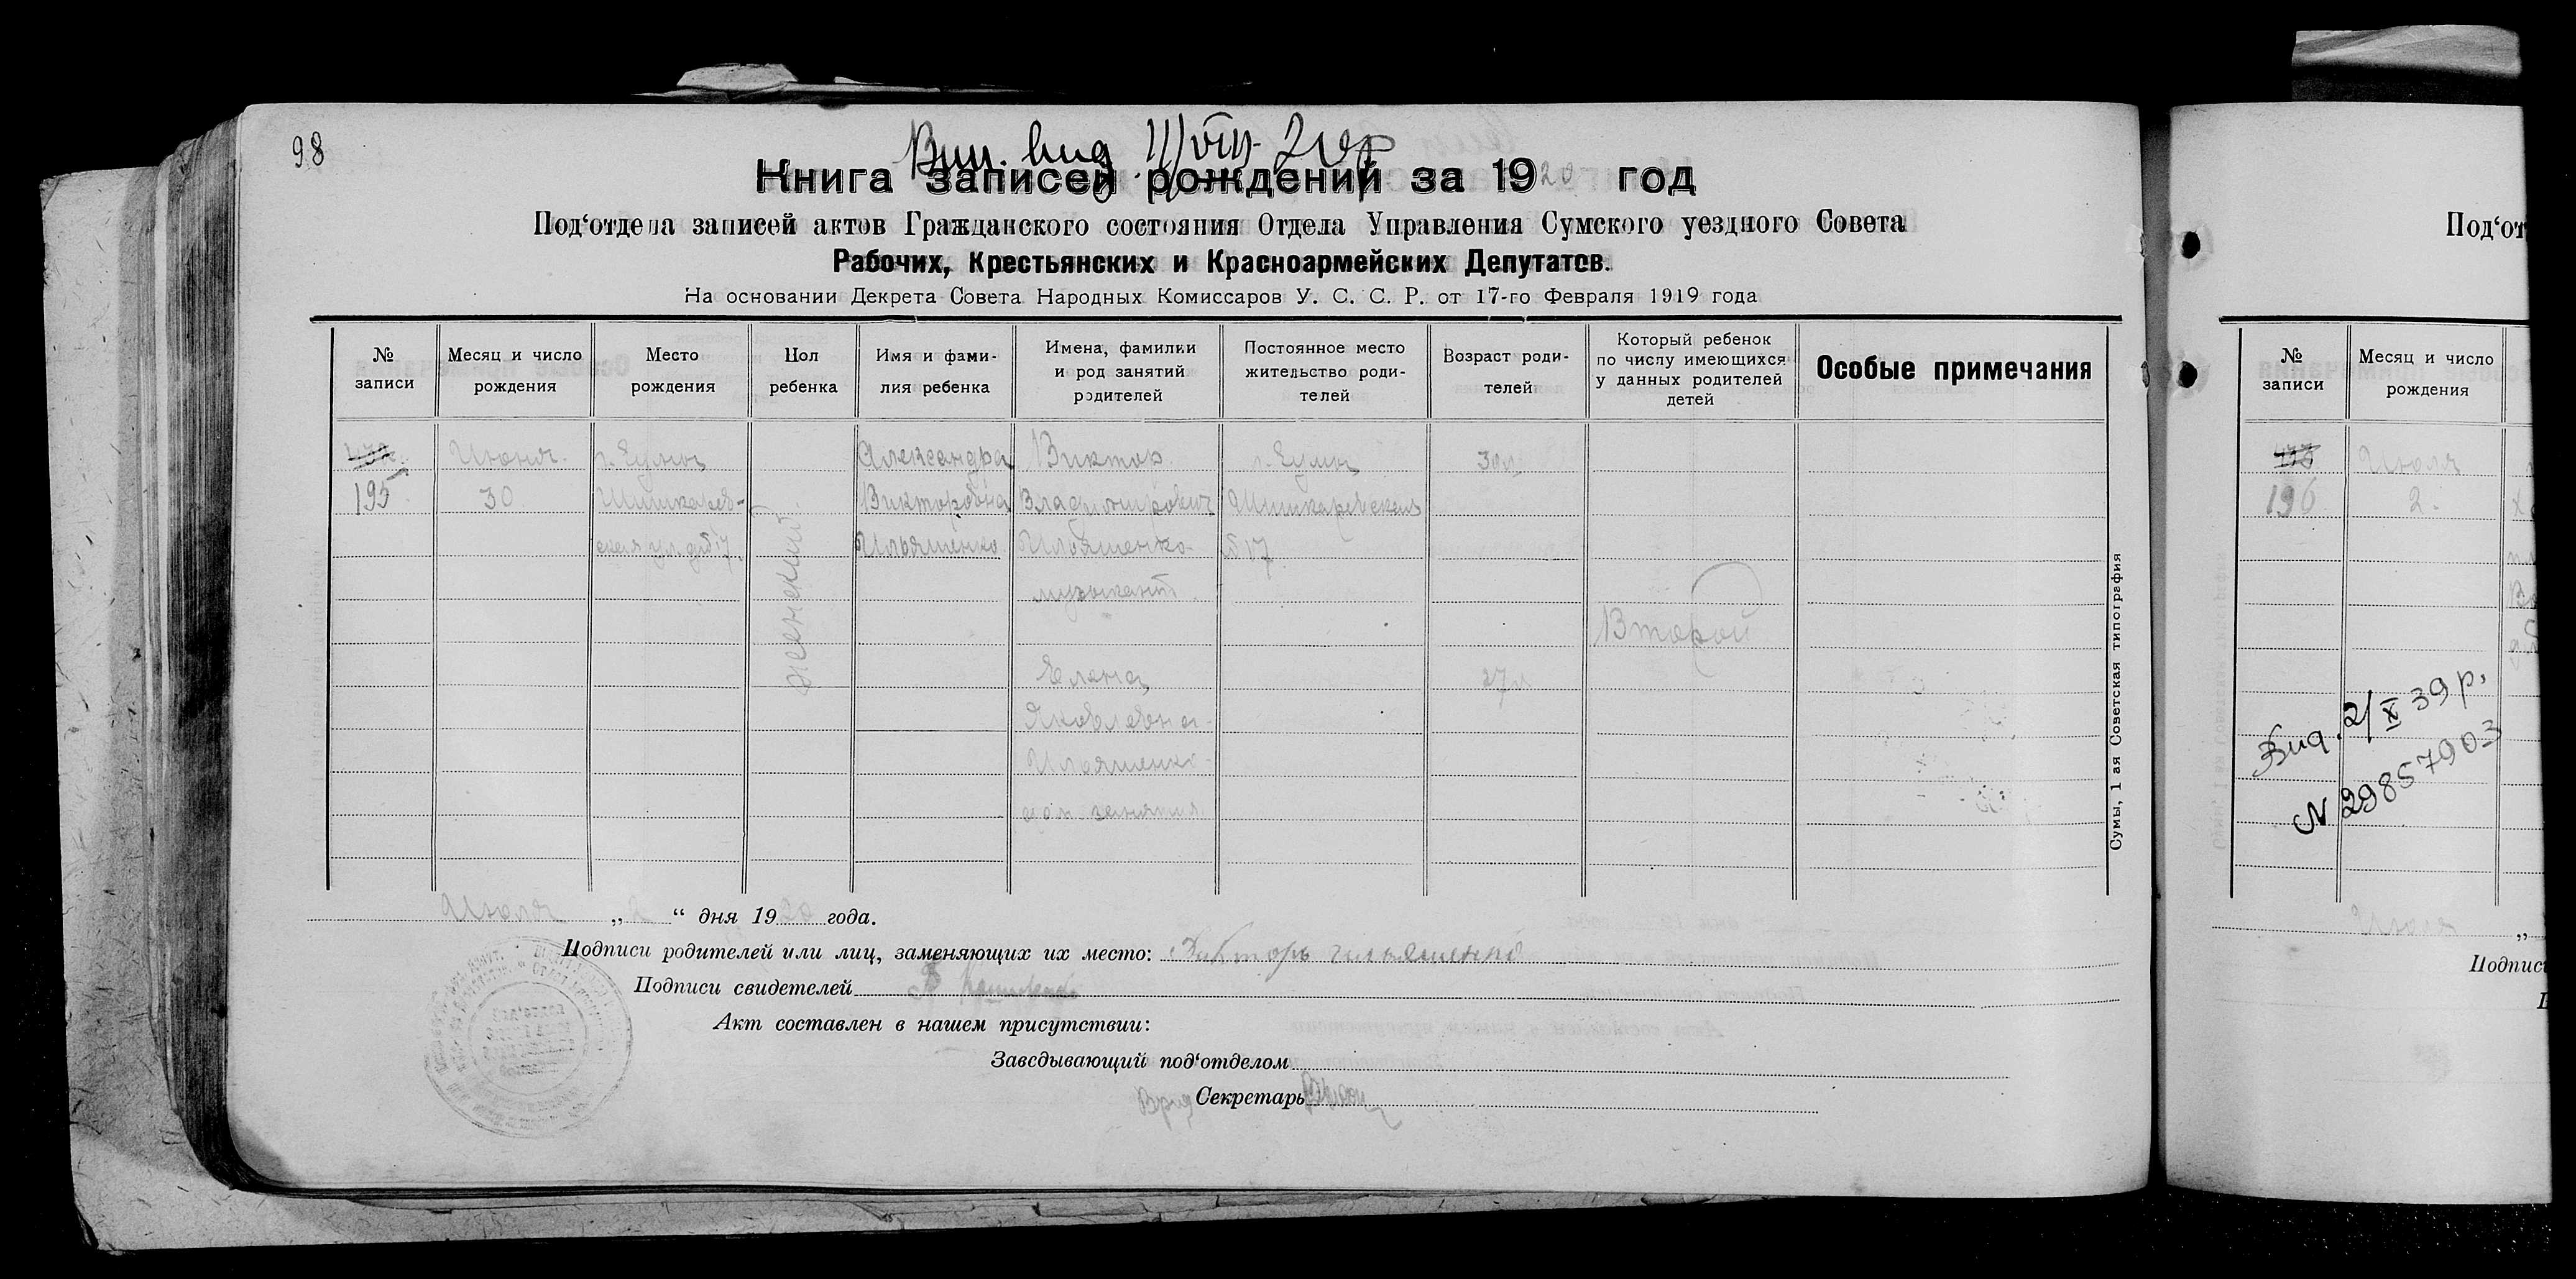 98
Книга записей рождений за 1920 год
Под‘отдела записей актов Гражданского состояния Отдела Управления Сумского уездного Совета
Рабочих, Крестьянских и Красноармейских Депутатов.
На основании Декрета Совета Народных Комиссаров У. С. С. Р. от 17-го Февраля 1919 года
№ записи
Месяц и число рождения
Место рождения
Пол ребенка
Имя и фамилия ребенка
Имена, фамилии и род занятий родителей
Постоянное место жительство родителей
Возраст родителей
Который ребенок по числу имеющихся у данных родителей детей
Особые примечания
195
Июня
30
г. Сумы
Шишкарев-
ская ул. д. № 17
женский
Александра
Викторовна
Ильяшенко
Виктор
Владимирович
Ильяшенко
музыкант
Елена
Яковлевна
Ильяшенко
дом. занятия
г. Сумы
Шишкаревская
№ 17
30 л
27 л
Второй
Сумы, 1 ая Советская типография
Июля „ 2 “ дня 1920 года.
Подписи родителей или лиц, заменяющих их место: Викторъ Ильяшенко
Подписи свидетелей
Акт составлен в нашем присутствии:
Заведывающий под‘отделом
Врид Секретарь
Под‘от
№ записи
Месяц и число рождения
196
Июля
2.
Вид. 2/X 39 р.
N 29857903
Июля „
Подпис